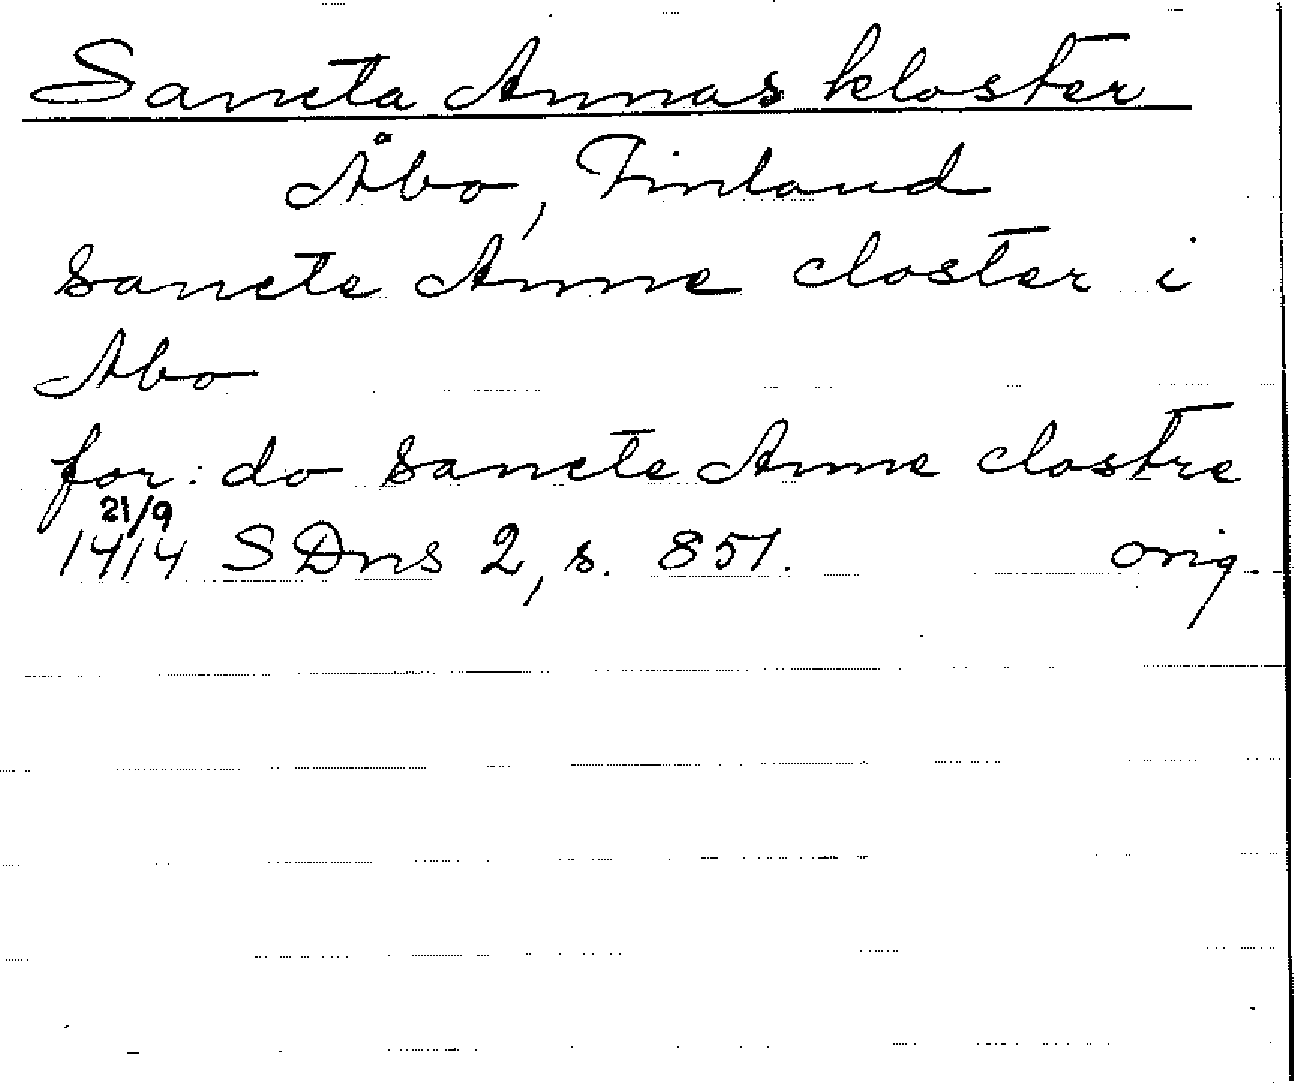 Sancta Annas kloster
Åbo, Finland
sancte Anne closter i
Abo
for: do sancte Anne clostre
21/9
1414 SDns 2, s. 851. orig.